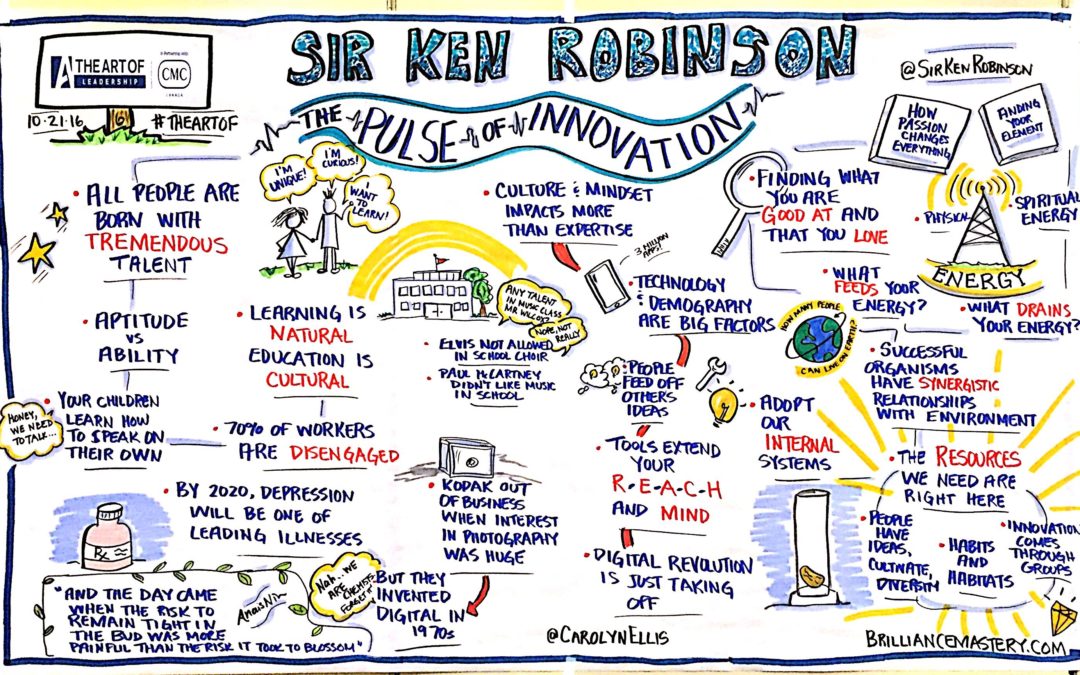 In Partnership With
THEART OF
LEADERSHIP
CMC
CANADA
10.21.16
#THEARTOF
SIR KEN ROBINSON
THE PULSE OF INNOVATION
@SIRKENROBINSON
HOW
PASSION
CHANGES
EVERYTHING
FINDING
YOUR
ELEMENT
• ALL PEOPLE ARE
BORN WITH
TREMENDOUS
TALENT
I'M
UNIQUE!
I'M
CURIOUS!
I
WANT
TO
LEARN!
• CULTURE & MINDSET
IMPACTS MORE
THAN EXPERTISE
• FINDING WHAT
YOU ARE
GOOD AT AND
THAT YOU LOVE
• PHYSICAL
• SPIRITUAL
ENERGY
ENERGY
• WHAT
FEEDS YOUR
ENERGY?
• WHAT DRAINS
YOUR ENERGY?
• APTITUDE
VS
ABILITY
• LEARNING IS
NATURAL
EDUCATION IS
CULTURAL
ANY TALENT
IN MUSIC CLASS
MR WILCOX?
NOPE, NOT
REALLY
• ELVIS NOT ALLOWED
IN SCHOOL CHOIR
• PAUL McCARTNEY
DIDN'T LIKE MUSIC
IN SCHOOL
3 MILLION
APPS!
• TECHNOLOGY
& DEMOGRAPHY
ARE BIG FACTORS
HOW MANY PEOPLE
CAN LIVE ON EARTH?
• SUCCESSFUL
ORGANISMS
HAVE SYNERGISTIC
RELATIONSHIPS
WITH ENVIRONMENT
HONEY,
WE NEED
TO TALK...
• YOUR CHILDREN
LEARN HOW
TO SPEAK ON
THEIR OWN
• 70% OF WORKERS
ARE DISENGAGED
• PEOPLE
FEED OFF
OTHERS
IDEAS
• ADOPT
OUR
INTERNAL
SYSTEMS
• TOOLS EXTEND
YOUR
R-E-A-C-H
AND MIND
• THE RESOURCES
WE NEED ARE
RIGHT HERE
• PEOPLE
HAVE
IDEAS,
CULTIVATE,
DIVERSITY
• HABITS
AND
HABITATS
• INNOVATION
COMES
THROUGH
GROUPS
RX
• BY 2020, DEPRESSION
WILL BE ONE OF
LEADING ILLNESSES
• KODAK OUT
OF BUSINESS
WHEN INTEREST
IN PHOTOGRAPHY
WAS HUGE
Nah...WE
ARE CHEMISTS
FORGET IT
BUT THEY
INVENTED
DIGITAL IN
1970s
• DIGITAL REVOLUTION
IS JUST TAKING
OFF
"AND THE DAY CAME
WHEN THE RISK TO
REMAIN TIGHT IN
THE BUD WAS MORE
PAINFUL THAN THE RISK IT TOOK TO BLOSSOM"
Anais Nin
@CAROLYNELLIS
BRILLIANCEMASTERY.COM